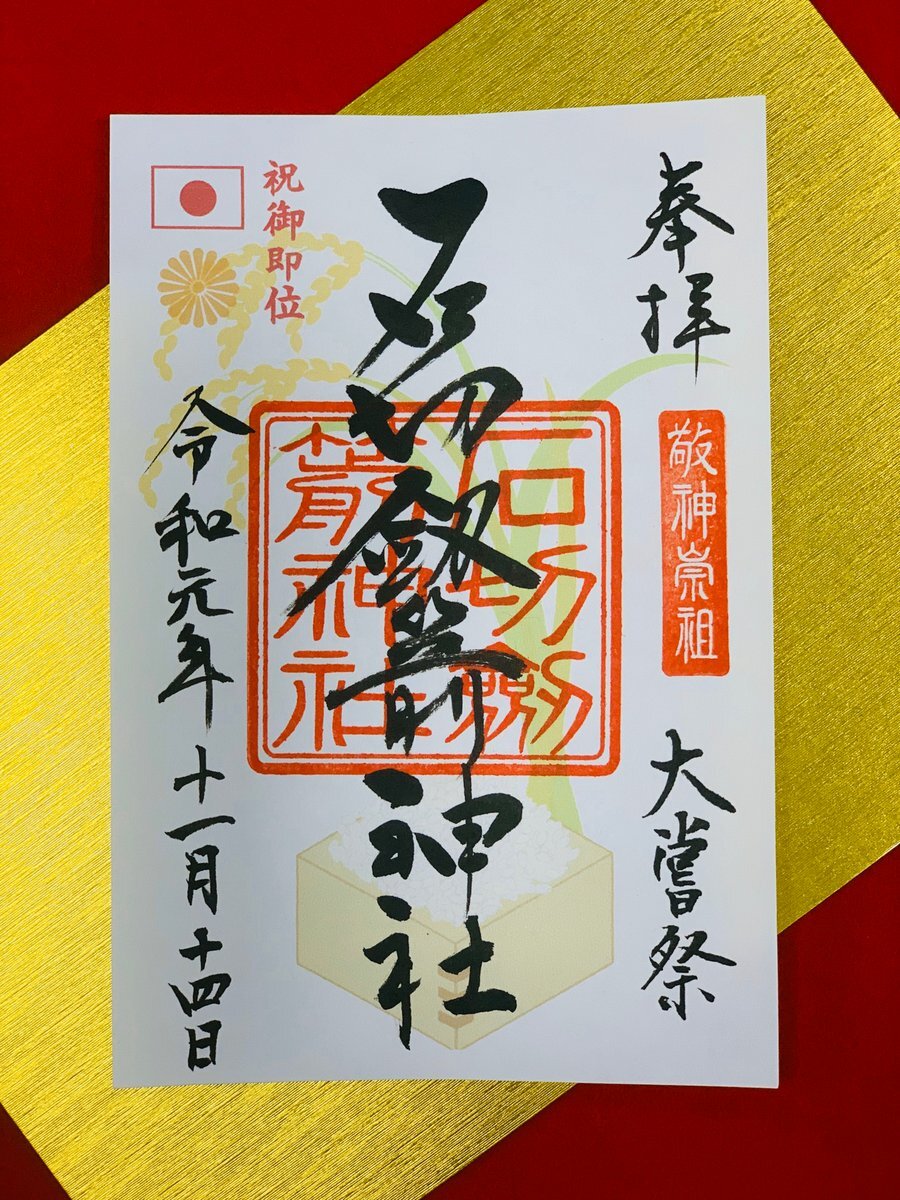 奉拝
敬神崇祖
大嘗祭
石切劔箭神社
石切劔
箭神社
祝御即位
令和元年十一月十四日